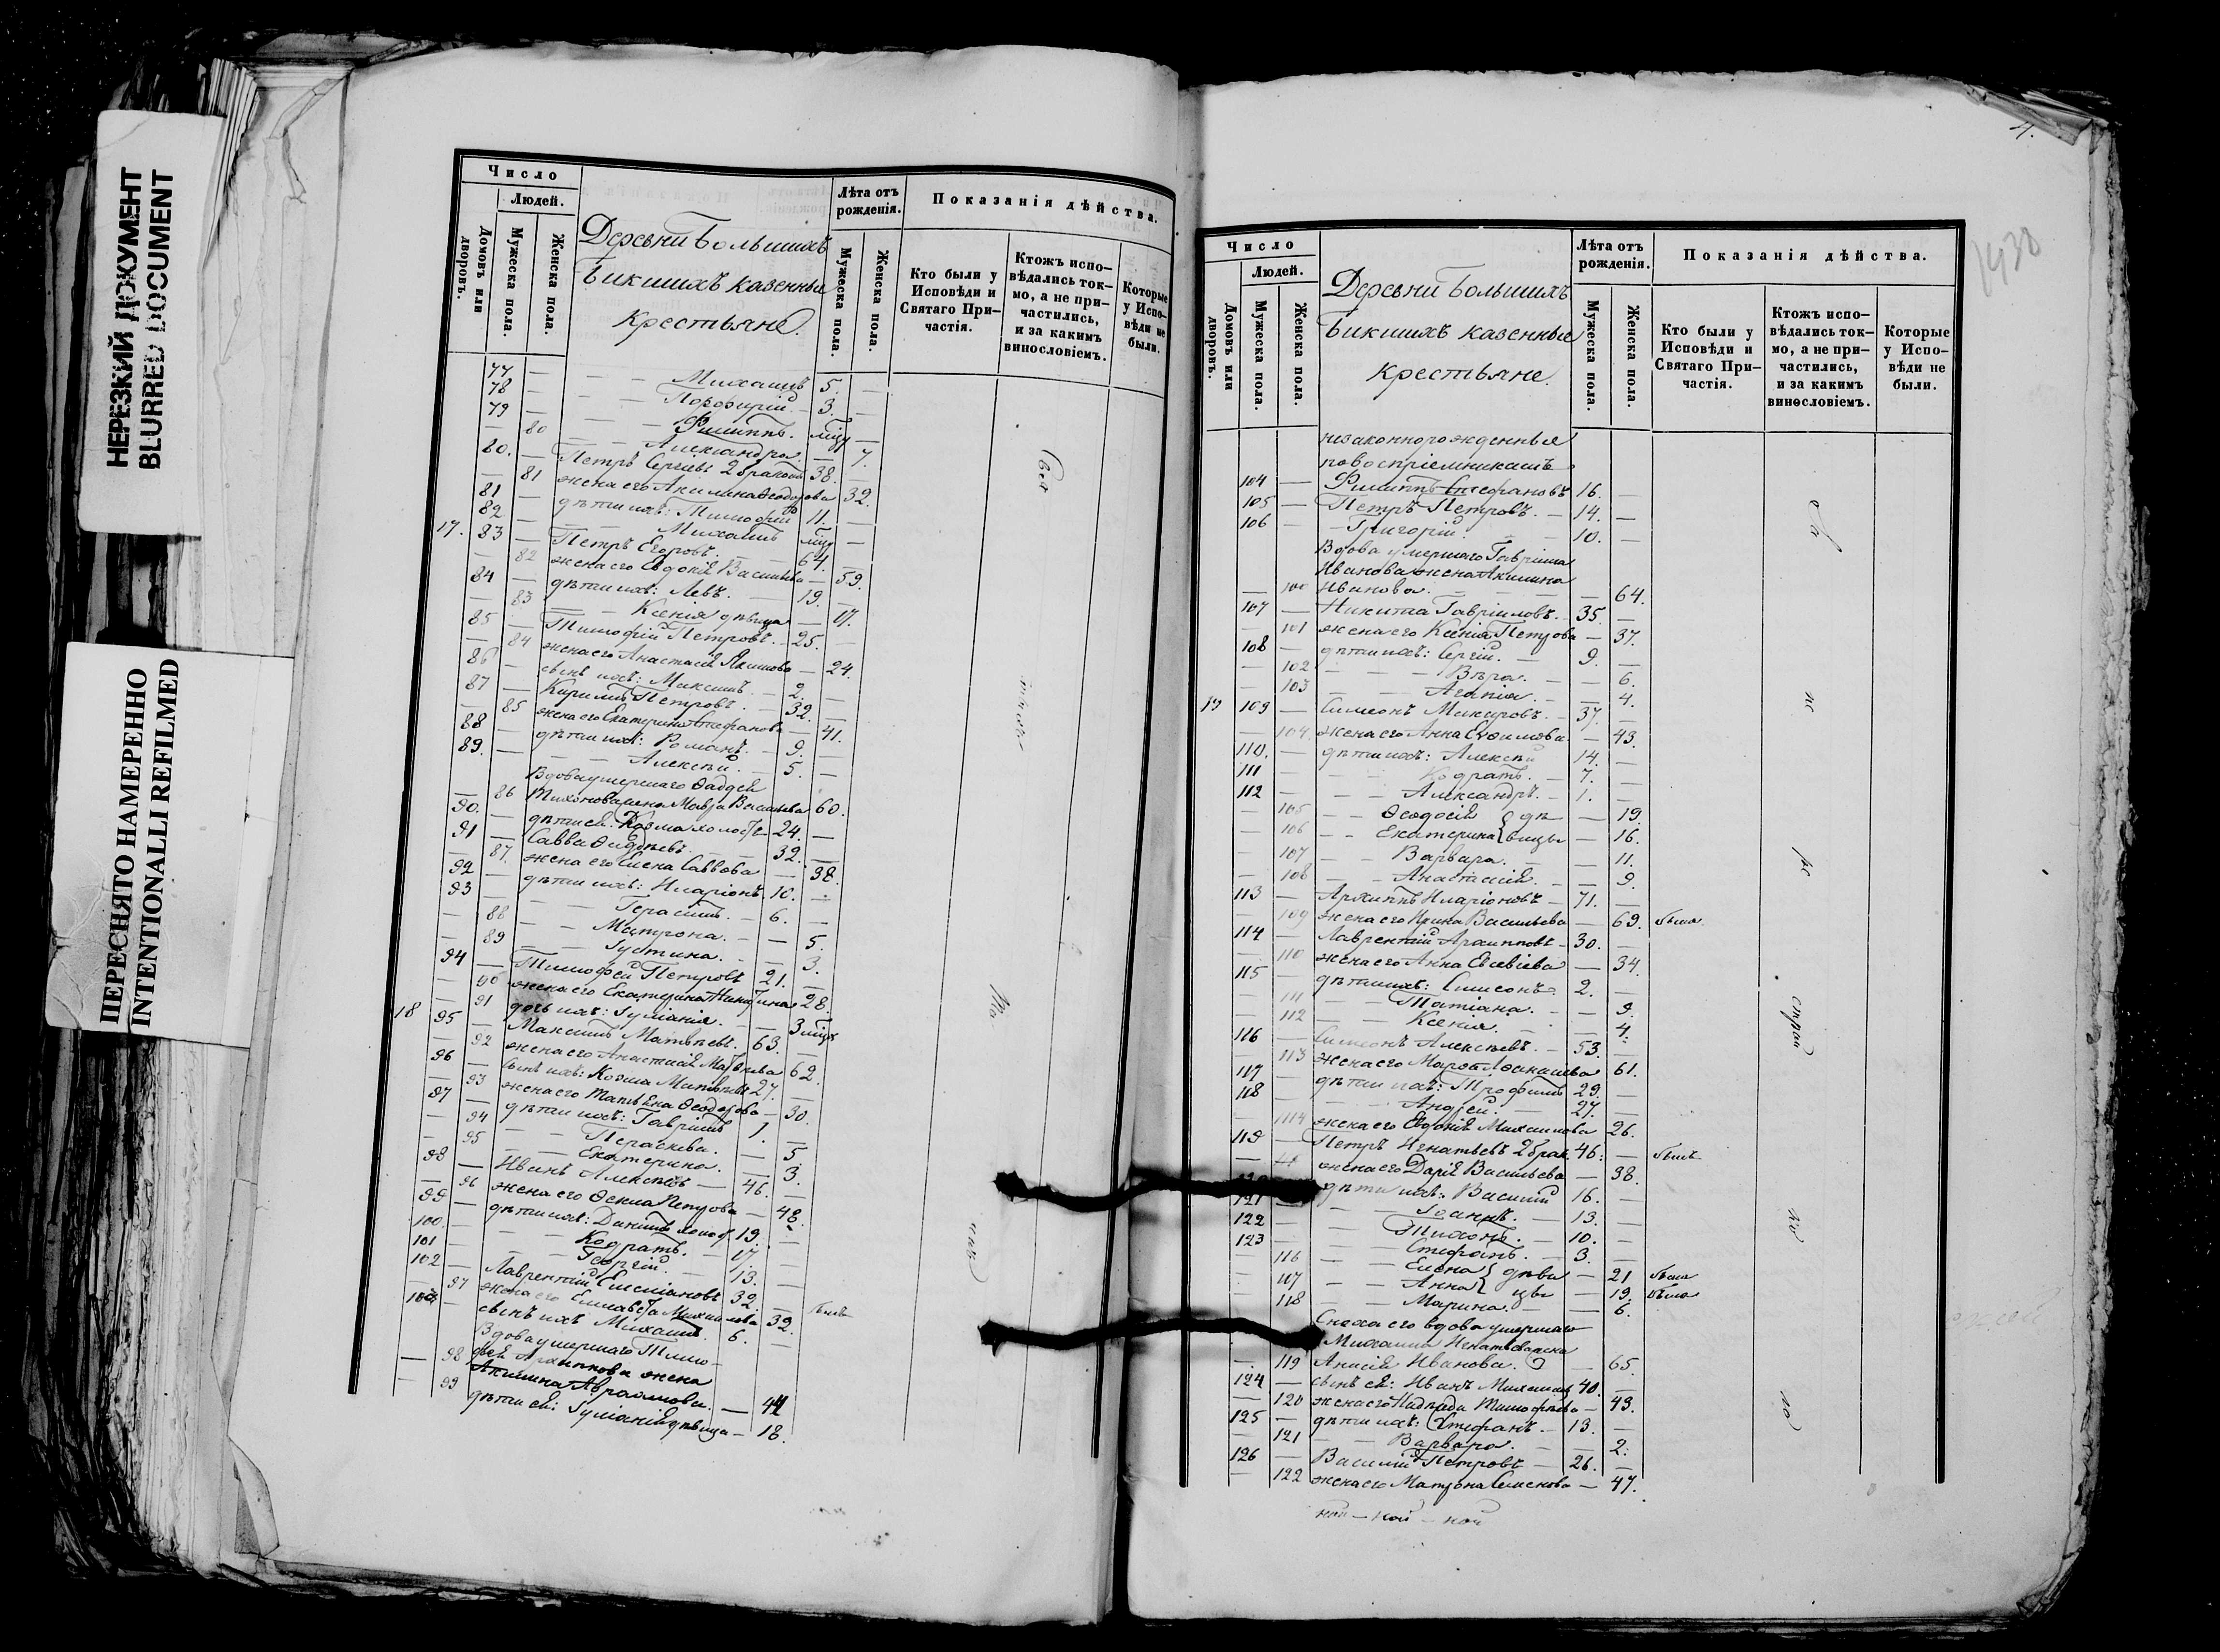 НЕРЕЗКИЙ ДОКУМЕНТ
BLURRED DOCUMENT
ПЕРЕСНЯТО НАМЕРЕННО
INTENTIONALLI REFILMED
Число
Людей.
Домовъ или дворовъ.
Мужеска пола.
Женска пола.
Деревни Большихъ
Бикшихъ казенныя
крестьяне.
Лѣта отъ рожденія.
Мужеска пола.
Женска пола.
Показанія дѣйства.
Кто были у Исповѣди и Святаго Причастія.
Ктожъ исповѣдались токмо, а не причастились, и за какимъ винословіемъ.
Которые у Исповѣди не были.
77 — — — Михаилъ 5. —
78 — — — Порфирій 3. —
79 — — — Филиппъ.
— 80 — — Александра. — 7.
80. — Петръ Сергіевъ 2 бракомъ 38. —
— 81 жена его Акилина Ѳеодорова 32.
81 — дѣти ихъ: Тимофей 11. —
82 — — — Михаилъ
17. 83 — Петръ Егоровъ. 64. —
— 82 жена его Евдокія Васильева — 59.
84 — дѣти ихъ: Левъ. 19. —
— 83 — — Ксенія дѣвица — 17.
85 — Тимофій Петровъ. 25. —
— 84 жена его Анастасія Якимова — 24.
86 — сынъ ихъ: Максимъ. 2. —
87 — Кирилъ Петровъ. 32. —
— 85 жена его Екатерина Стефанова — 41.
88 — дѣти ихъ: Романъ. 9. —
89. — — — Алексѣй. 5. —
Вдова умершаго Ѳаддея
— 86 Тихонова жена Мавра Васильева 60.
90. — дѣти ея: Козма холостъ 24. —
91 — Савва 32. —
— 87. жена его Елена Саввова — 38.
92 — дѣти ихъ: Иларіонъ. 10. —
93 — — — Герасимъ. 6. —
— 88 — — Матрона. — 5.
— 89 — — Іустина. — 3.
94 — Тимофей Петровъ 21. —
— 90 жена его Екатерина 28.
— 91 дочь ихъ: Іуліанія. — 3
18 95 — Максимъ Матвѣевъ. 63. —
— 92 жена его Анастасія Матвѣева 62.
96 — сынъ ихъ: Козма 27. —
— 93 жена его Татьяна Ѳеодорова — 30.
97 — дѣти ихъ: Гавріилъ 1. —
— 94 — — Пераскева. — 5.
— 95 — — Екатерина. — 3.
98 — Иванъ Алексѣевъ — 46. —
— 96 жена его Ѳекла Петрова — 48.
99 — дѣти ихъ: Даніилъ холост 19. —
100. — — — Кодратъ. 17. —
101 — — — Георгій. 13. —
102 — Лаврентій Емеліановъ 32. —
— 97 жена его Елисавета 32.
103 — сынъ ихъ Михаилъ. 6. —
Вдова умершаго Тимо-
— 98 фея Архиппова жена
Акилина Авраамова. — 44
— 99 дѣти ея: Іуліанія дѣвица — 18.
4.
1430
Число
Людей.
Домовъ или дворовъ.
Мужеска пола.
Женска пола.
Деревни Большихъ
Бикшихъ казенные
крестьяне.
Лѣта отъ рожденія.
Мужеска пола.
Женска пола.
Показанія дѣйства.
Кто были у Исповѣди и Святаго Причастія.
Ктожъ исповѣдались токмо, а не причастились, и за какимъ винословіемъ.
Которые у Исповѣди не были.
незаконнорожденныя
повоспріемникамъ
104 — Филиппъ Стефановъ 16. —
105 — Петръ Петровъ. — 14. —
106 — Григорій. 10. —
Вдова умершаго Гавріила
Иванова жена Акилина
— 100 Иванова. — 64.
107 — Никита Гавріиловъ. 35. —
— 101 жена его Ксенія Петрова — 37.
108 — дѣти ихъ: Сергій. 9. —
— 102 — — Вѣра. — 6.
— 103 — — Агапія. — 4.
19 109 — Симеонъ Макаровъ. 37. —
— 104. жена его Анна Евфимова — 43.
110. — дѣти ихъ: Алексѣй 14. —
111 — — — Кодратъ. 7. —
112 — — — Александръ. 1. —
— 105 — — Ѳеодосія } дѣ — 19.
— 106 — — Екатерина } вицы — 16.
— 107 — — Варвара. — 11.
— 108 — — Анастасія. — 9.
113 — Архиппъ Иларіоновъ — 71. —
— 109 жена его Ирина Васильева — 69. была
114 — Лаврентій Архипповъ 30. —
— 110 жена его Анна Евсевіева — 34.
115 — дѣти ихъ: Симеонъ. 2. —
— 111 — — Татіана. — 9.
— 112 — — Ксенія. — 4.
116 — Симеонъ Алексѣевъ. 53. —
— 113 жена его 61.
117 — дѣти ихъ: Трофимъ 29. —
118 — — — Андрей. 27. —
— 114 жена его Евдокія Михаилова 26.
119 — Петръ Игнатьевъ 2 брак. 46. — былъ
жена его Дарія Васильева — 38.
дѣти ихъ: Василій 16. —
121 — — Іоаннъ. — 13. —
122 — — — Тихонъ. 10. —
123 — — — Стефанъ. 3. —
— 116 — — Елена } дѣви — 21 была
— 117 — — Анна } цы — 19. была
— 118 — — Марина. — 6.
Сноха его вдова умершаго
Михаила
— 119 Анисія Иванова. — 65.
124 — сынъ ея: Иванъ 40. —
— 120 жена его Надежда Тимофѣева — 43.
125 — дѣти ихъ: Стефанъ. 13. —
— 121 — — Варвара. — 2.
126 — Василій Петровъ — 26. —
— 122 жена его Матрона Семенова — 47.